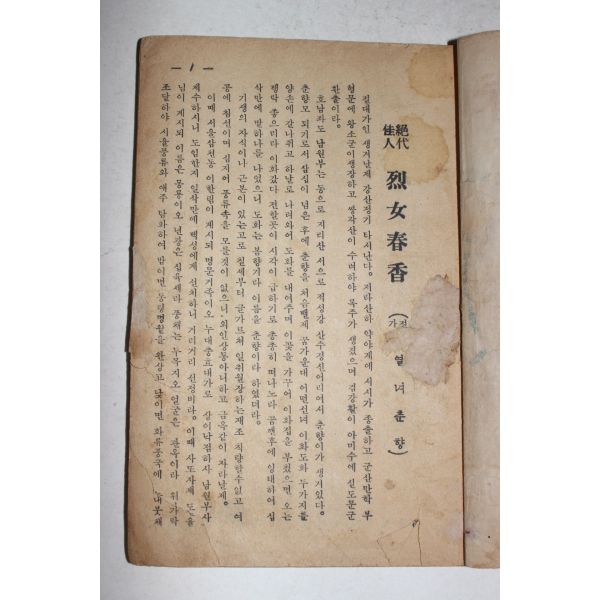 — 1 —
絕代佳人 烈女春香
(전가 열녀춘향)
절대가인 생겨날제 강산정기 타서난다. 저라산하 약야계에 서시가 종출하고 군산만학 부
형문에 왕소군이 생장하고 쌍각산이 수려하야 록주가 생겼으며 금강활이 아미수에 설도문군
환출이라.
호남좌도 남원부는 동으로 지리산 서으로 적성강 산수정신 어리여서 춘향이가 생겨있다.
춘향모 퇴기로서 삼십이 넘은 후에 춘향을 처음밸제 꿈가운대 어떤선녀 이화도화 두가지를
양손에 갈나쥐고 하날로 나려와어 도화를 내여주며 이꽃을 가꾸어 이화접을 부쳤으면 오는
행락 좋으리라 이화갔다 전할곳이 시각이 급하기로 총총히 떠나노라 꿈깬후에 잉태하여 십
삭만에 딸하나를 나았으니 도화는 봄향기라 이름을 춘향이라 하였더라.
기생의 자식이나 근본이 있는고로 칠세부터 글가르쳐 일취월장하는재조 칙량할수없고 여
공에 침선이며 심지어 풍류속을 모를것이 없으니 외인상통아니하고 금옥같이 자라날제.
이때 서울삼천동 이한림이 계시되 명문거족이오 누대충효대가로 상이낙점하사 남원부사
제수하시니 도임한지 일삭만에 백성에게 선치하니 거리거리 선정비라. 이때 사도자제 도련
님이 계시되 이름은 몽룡이오 년광은 십육세라 풍채는 두목지오 얼굴은 관옥이라 위가락
조달하야 서울풍류와 애주 탐화하여 밤이면 동령명월을 완상고 낮이면 화류중국에 내뭇채